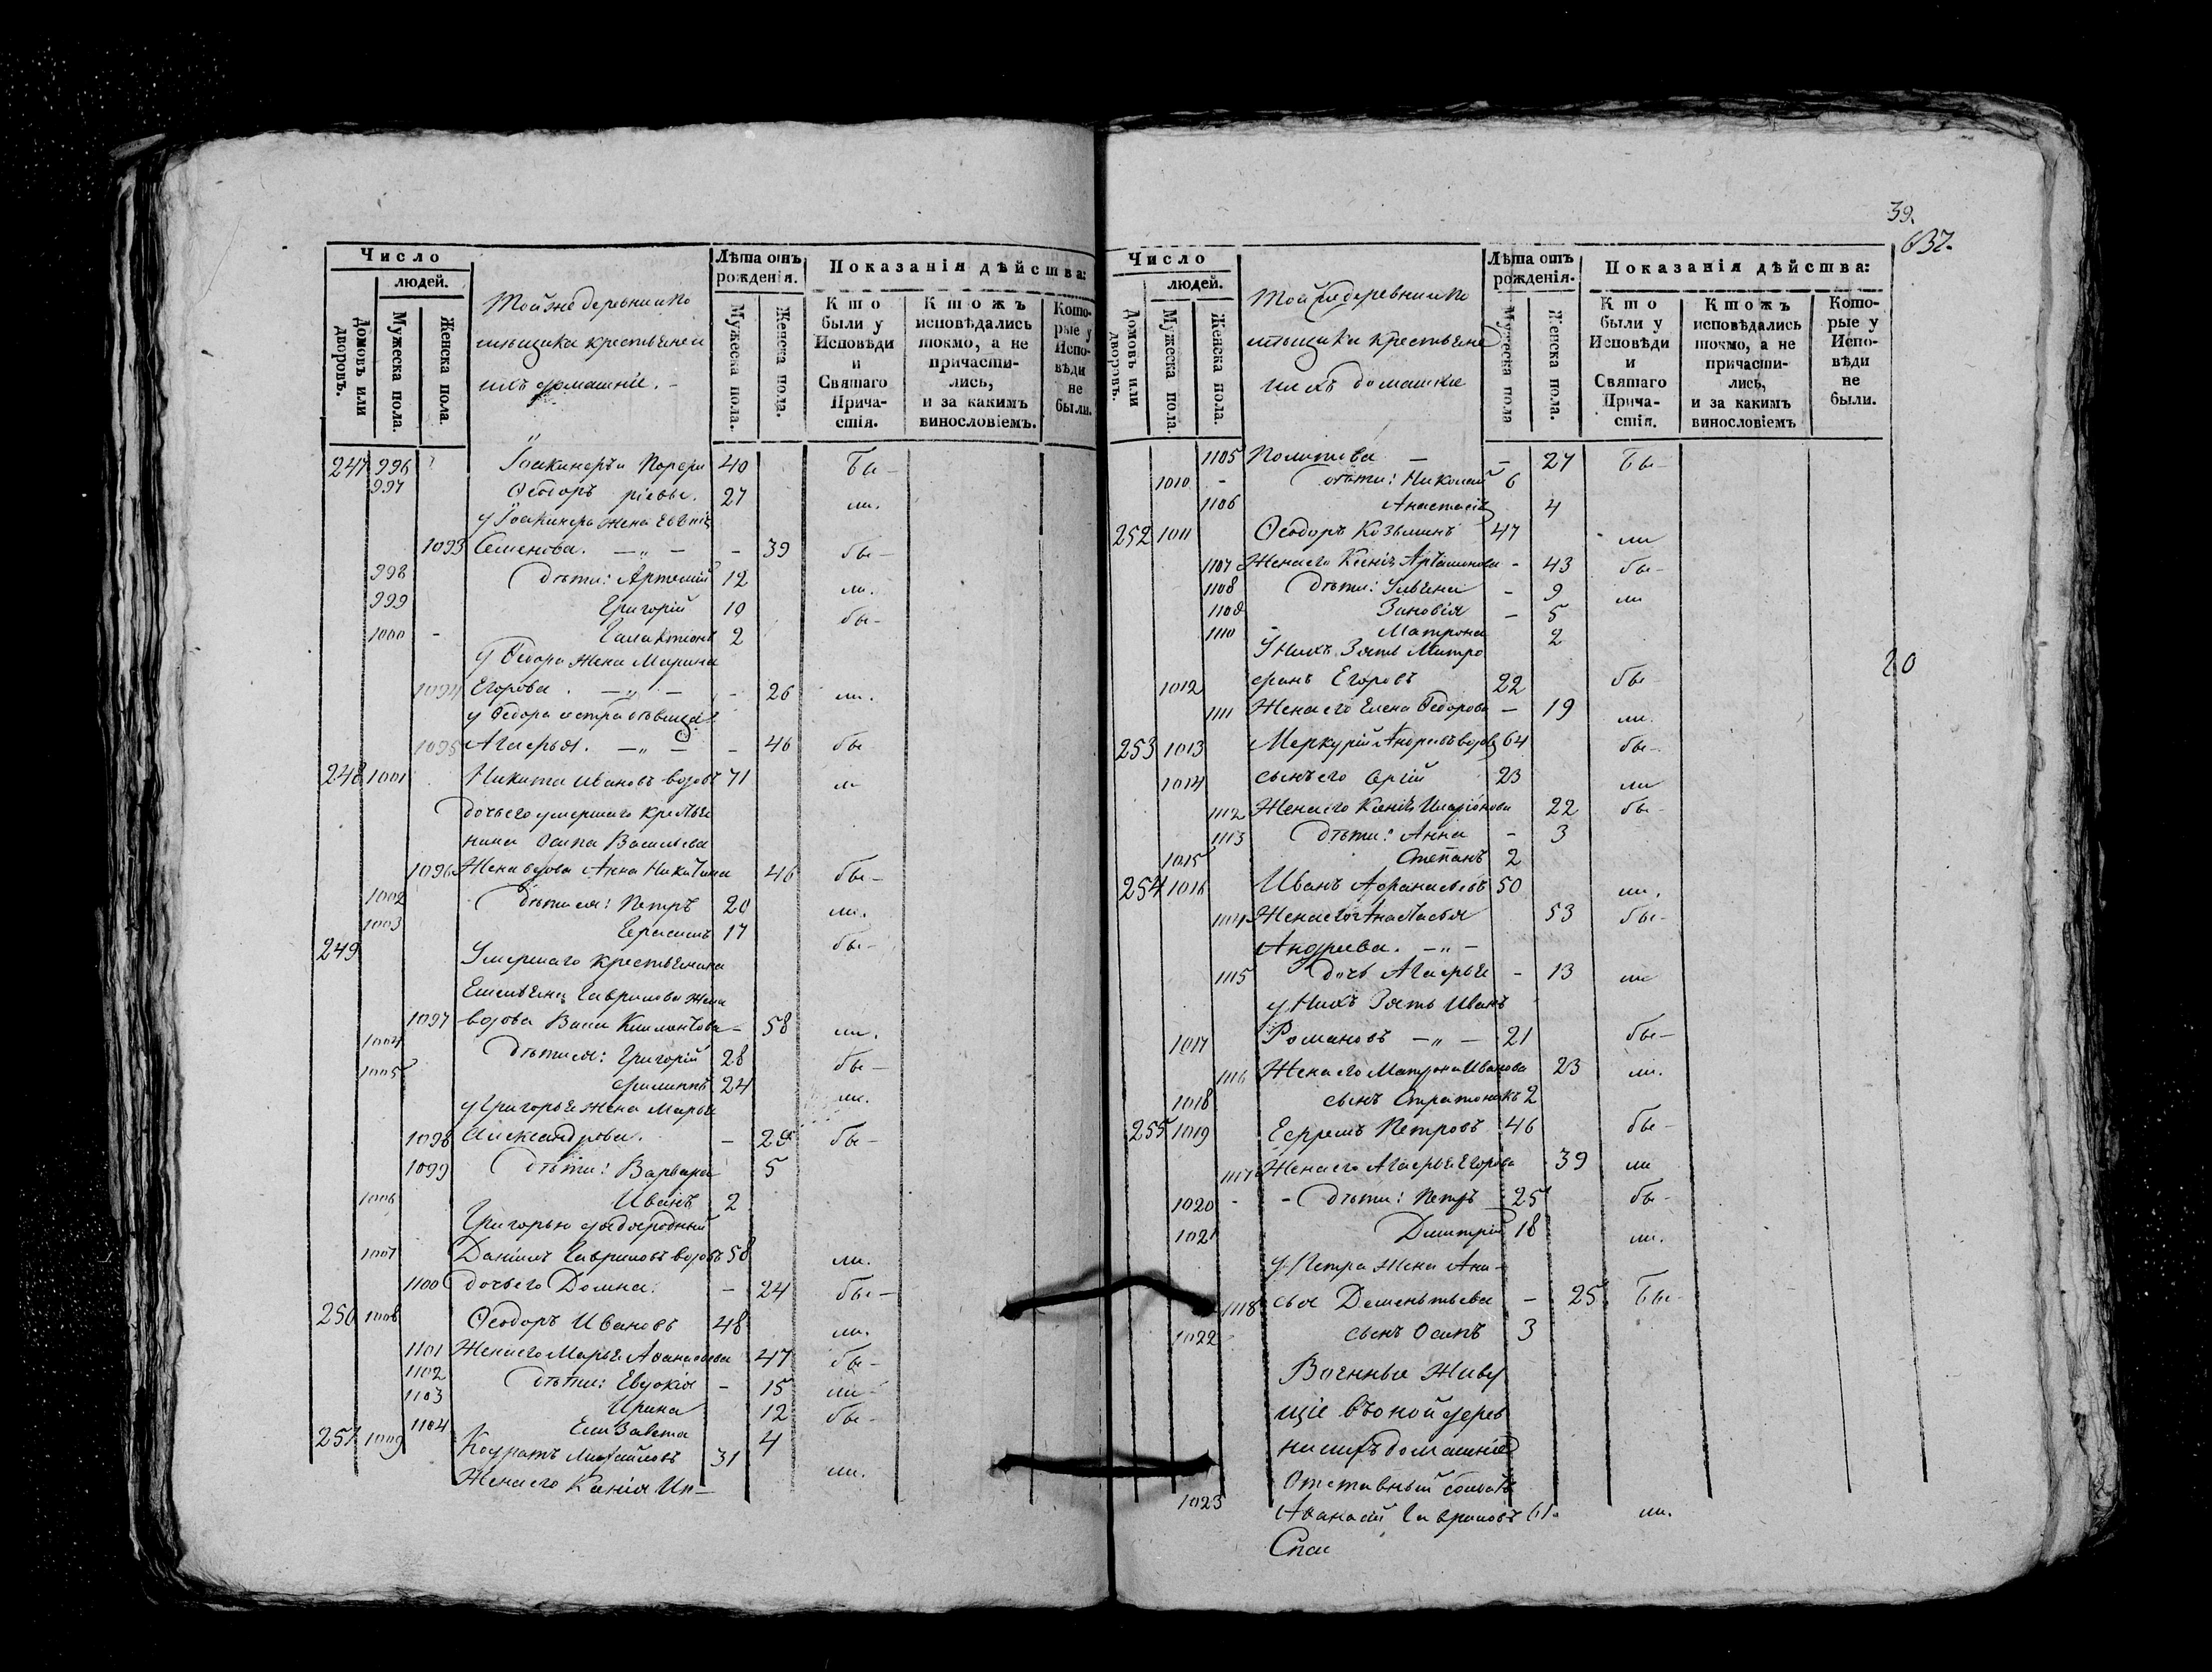 Число
людей.
Домовъ или дворовъ.
Мужеска пола.
Женска пола.
Той же деревни по
мѣщика крестьяне и
ихъ домашніе. -
Лѣта отъ рожденія.
Мужеска пола.
Женска пола.
Показанія дѣйства:
Кто были у Исповѣди и Святаго Прича-стія.
Ктожъ исповѣдались токмо, а не причасти-лись, и за какимъ винословіемъ.
Кото-рые у Испо-вѣди не были.
247 996 Іоакинъ и Порфи 40 бы-
997 Ѳеодоръ ріевы. 27 ли.
у Іоакинфа жена Евгнія
1093 Семенова. —„— - 39 бы-
998 дѣти: Артемій 12 ли.
999 Григорій 10 бы-
1000 - Галактіонъ 2
у Ѳедора жена Марина
1094 Егорова. —„— - 26 ли.
у Ѳедора сестра дѣвица
1095 Агафья. —„— - 46 бы
248 1001 Никита Ивановъ вдовъ 71 ли
дочь его умершаго крестья
нина Осипа Васильева
1096 Жена вдова Анна Никитина 46 бы-
1002 дѣти ея: Петръ 20 ли.
1003 Герасимъ 17 бы-
249 Умершаго крестьянина
Емельяна Гаврилова жена
1097 вдова Васи - 58 ли.
1004 дѣти ея: Григорій 28 бы-
1005 Филиппъ 24 ли.
у Григорья жена Марья
1098 Александрова. - 28 бы-
1099 дѣти: Варвара 5
1006 Иванъ 2
Григорью
1007 Даніилъ Гавриловъ вдовъ 58 ли.
1100 дочь его Домна. - 24 бы-
250 1008 Ѳеодоръ Ивановъ 48 ли.
1101 Жена его Марья Аѳанасьева 47 бы-
1102 дѣти: Евдокія - 15 ли-
1103 Ирина 12 бы-
1104 Елизавета 4
251 1009 Кодратъ Михайловъ 31 ли.
Жена его Ксенія Ип-
39.
637.
Число
людей.
Домовъ или дворовъ.
Мужеска пола.
Женска пола.
Той же деревни по
мѣщика крестьяне
и ихъ домашніе
Лѣта отъ рожденія.
Мужеска пола
Женска пола.
Показанія дѣйства:
Кто были у Исповѣди и Святаго Прича-стія.
Ктожъ исповѣдались токмо, а не причасти-лись, и за какимъ винословіемъ
Кото-рые у Испо-вѣди не были.
1105 Политова — - 27 бы-
1010 - дѣти: Николай 6
1106 Анастасія 4
252 1011 Ѳеодоръ Козьминъ 47 ли
1107 Жена его Ксенія Артамонова - 43 бы-
1108 дѣти: Ульяна - 9 ли
1109 Зиновія - 5
1110 - Матрона 2
У нихъ зять Митро
1012 фанъ Егоровъ 22 бы-
1111 Жена его Елена Ѳедорова - 19 ли.
20
253 1013 Меркурій Андреевъ вдовъ 64 бы-
1014 сынъ его Сергій 23 ли
1112 Жена его Ксенія Иларіонова 22 бы-
1113 дѣти: Анна - 3
1015 Степанъ 2
254 1016 Иванъ Афанасьевъ 50 ли.
1114 Жена его Анастасья 53 бы-
Андреева. —„—
1115 дочь Агафья - 13 ли
у нихъ зять Иванъ
1017 Романовъ —„— 21 бы-
1116 Жена его Матрона Иванова 23 ли.
1018 сынъ Стратоникъ 2
255 1019 Ефремъ Петровъ 46 бы-
1117 Жена его Агафья Егорова 39 ли
1020 - - дѣти: Петръ 25 бы-
1021 Димитрій 18 ли.
у Петра жена Ана-
1118 сья Дементьева - 25 бы-
1022 сынъ Осипъ 3
Военные живу
щіе въ оной дерев
ни и ихъ домашніе
Отставный солдатъ
1023 Аѳанасій Гавриловъ 61. ли.
Спи